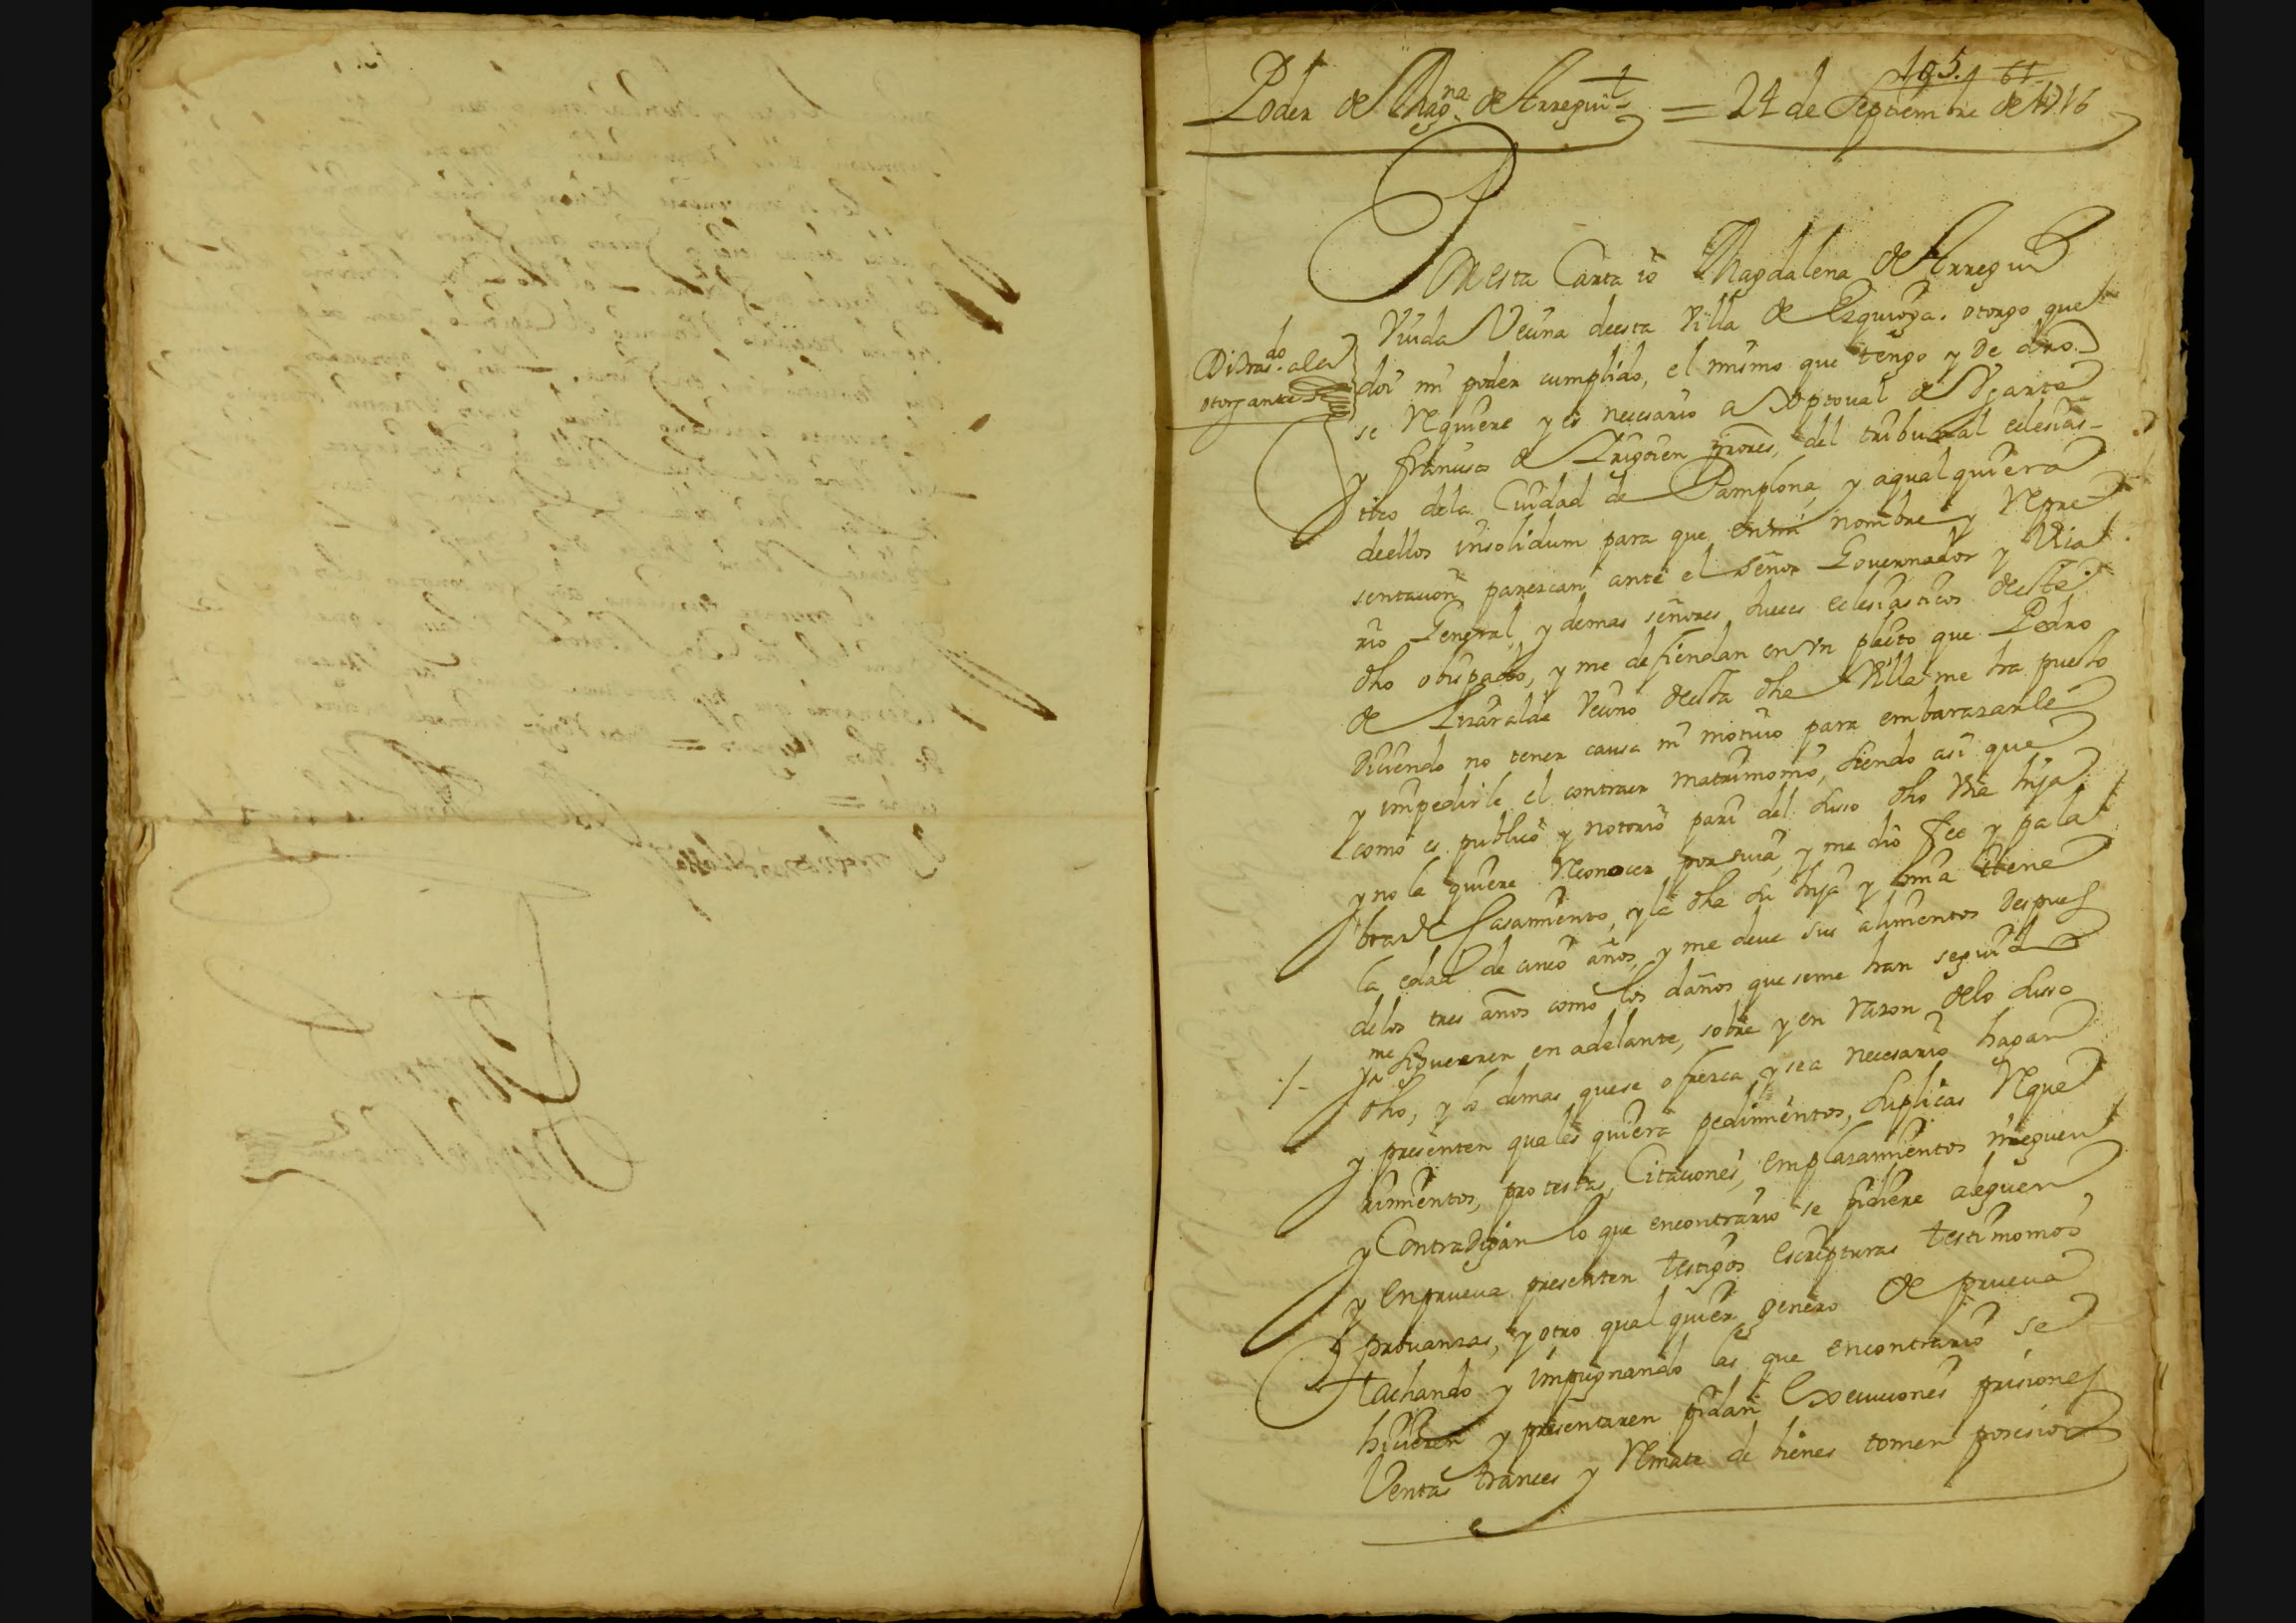 105. 61
Poder de Magna. de Arregui = 24 de Septiembre de 1716
En esta Carta io Magdalena de Arregui
Viuda Vecina deesta Villa de Ezquioga. otorgo que
Di Tras.do ala
otorgante
doi mi poder cumplido, el mismo que tengo y de dro.
se Requiere y es necesario a Xptoual de Vgarte
y françisco de Yrigoien prores, del tribunal eclesias-
tico dela Ciudad de Pamplona, y aqual quiera
deellos insolidum para que enmi nombre y Repre
sentacion parezcan ante el señor Governador y Vica
rio General, y demas señores Jueces eclesiasticos deeste
dho obispado, y me defiendan en vn pleito que Pedro
de Lizaralde Vecino deesta dha Villa me ha puesto
diciendo no tener causa ni motiuo para embarazarle
y impedirle el contraer matrimonio, siendo asi que
como es publico y notorio pari del suso dho Vna hija
y no la quiere Reconocer por suia, y me dio fee y pala
bra de Casamiento, y la dha su hija y mia tiene
la edad de cinco años, y me deue sus alimentos despues
delos tres años como los daños que seme han seguido
me
./- ya siguieren en adelante, sobre y en razon delo suso
dho, y lo demas quese ofrezca y sea necesario hagan
y presenten quales quiera pedimentos, suplicas Reque
rimientos, protestas, Citaciones, emplazamientos nieguen
y Contradigan lo que encontrario se pidiere aleguen
y enprueua presenten testigos escripturas testimonios
prouanzas, y otro qual quier genero de prueua
tachando y impugnando las que encontrario se
hicieren y presentaren pidan Execuciones prisiones
Ventas trances y Remate de bienes tomen posesion